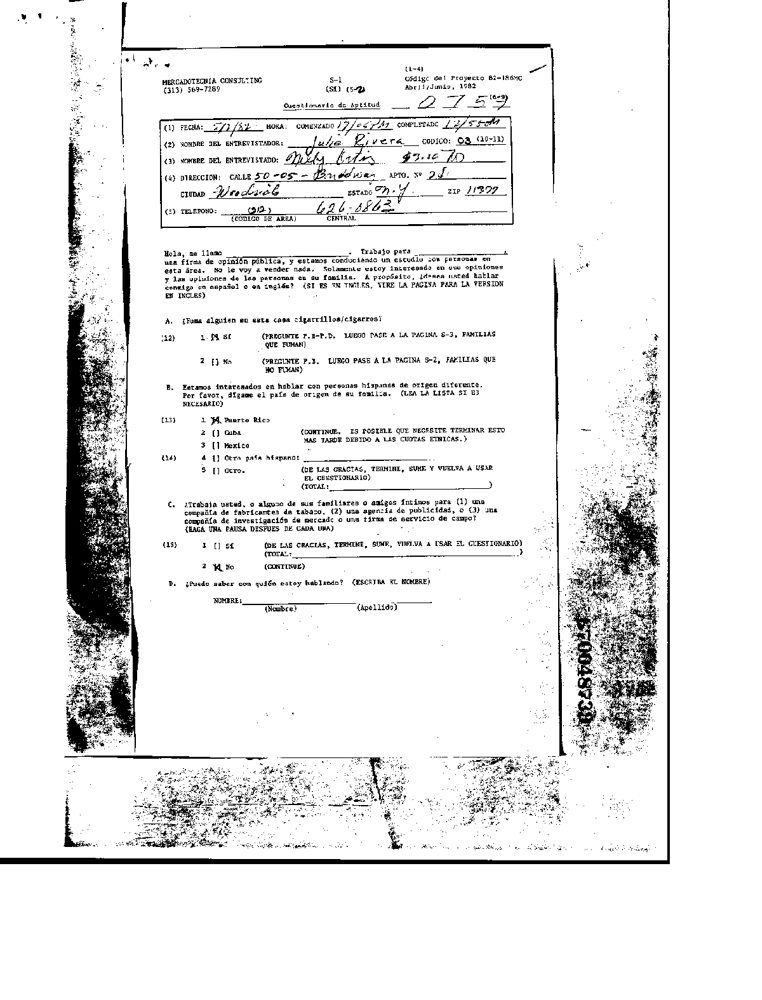 (1-4)
MERCADOTECNIA CONSULTING S-1 Código del Proyecto 82-186NC
(313) 569-7289 (SI) (5-2) Abril/Junio, 1982
Cuestionario de Aptitud 0757 (6-9)
(1) FECHA: HORA: COMENZADO COMPLETADO
(2) NOMBRE DEL ENTREVISTADOR: Julia Rivera CODIGO: 03 (10-11)
(3) NOMBRE DEL ENTREVISTADO:
(4) DIRECCION: CALLE 50-05 - Broadway APTO. Nº
CIUDAD Woodside ESTADO N.Y. ZIP 11377
(5) TELEFONO: (212) 626-0863
(CODIGO DE AREA) CENTRAL
Hola, me llamo . Trabajo para ,
una firma de opinión pública, y estamos conduciendo un estudio con personas en
esta área. No le voy a vender nada. Solamente estoy interesado en sus opiniones
y las opiniones de las personas en su familia. A propósito, ¿desea usted hablar
conmigo en español o en inglés? (SI ES EN INGLES, VIRE LA PAGINA PARA LA VERSION
EN INGLES)
A. ¿Fuma alguien en esta casa cigarrillos/cigarros?
(12) 1 [X] Sí (PREGUNTE P.B-P.D. LUEGO PASE A LA PAGINA S-3, FAMILIAS
QUE FUMAN)
2 [] No (PREGUNTE P.B. LUEGO PASE A LA PAGINA S-2, FAMILIAS QUE
NO FUMAN)
B. Estamos interesados en hablar con personas hispanas de origen diferente.
Por favor, dígame el país de origen de su familia. (LEA LA LISTA SI ES
NECESARIO)
(13) 1 [X] Puerto Rico
2 [] Cuba (CONTINUE. ES POSIBLE QUE NECESITE TERMINAR ESTO
3 [] Mexico MAS TARDE DEBIDO A LAS CUOTAS ETNICAS.)
(14) 4 [] Otro país hispano:
5 [] Otro. (DE LAS GRACIAS, TERMINE, SUME Y VUELVA A USAR
EL CUESTIONARIO)
(TOTAL: )
C. ¿Trabaja usted, o alguno de sus familiares o amigos íntimos para (1) una
compañía de fabricantes de tabaco, (2) una agencia de publicidad, o (3) una
compañía de investigación de mercado o una firma de servicio de campo?
(HAGA UNA PAUSA DESPUES DE CADA UNA)
(15) 1 [] Sí (DE LAS GRACIAS, TERMINE, SUME, VUELVA A USAR EL CUESTIONARIO)
(TOTAL: )
2 [X] No (CONTINUE)
D. ¿Puedo saber con quién estoy hablando? (ESCRIBA EL NOMBRE)
NOMBRE:
(Nombre) (Apellido)